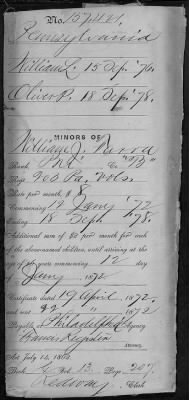 No. 157,421.
Pennsylvania
William L. 15 Sep. '76.
Oliver P. 18 Sep. '78.
MINORS OF
William J.
Rank Pvt. Co. "B"
Reg. 203 Pa. Vols.
Rate per month $8
Commencing 12 Jany '72
Ending 18 Sept '78.
Additional sum of $2 per month for each
of the above-named children, until arriving at the
age of 16 years commencing 12 day
Jany 1872
Certificate dated 19 April 1872.
and sent 22 " 1872
Payable at Philadelphia Agency
Francis
Attorney.
Act July 14, 1862.
Book Vol. 13. Page 207
Clerk